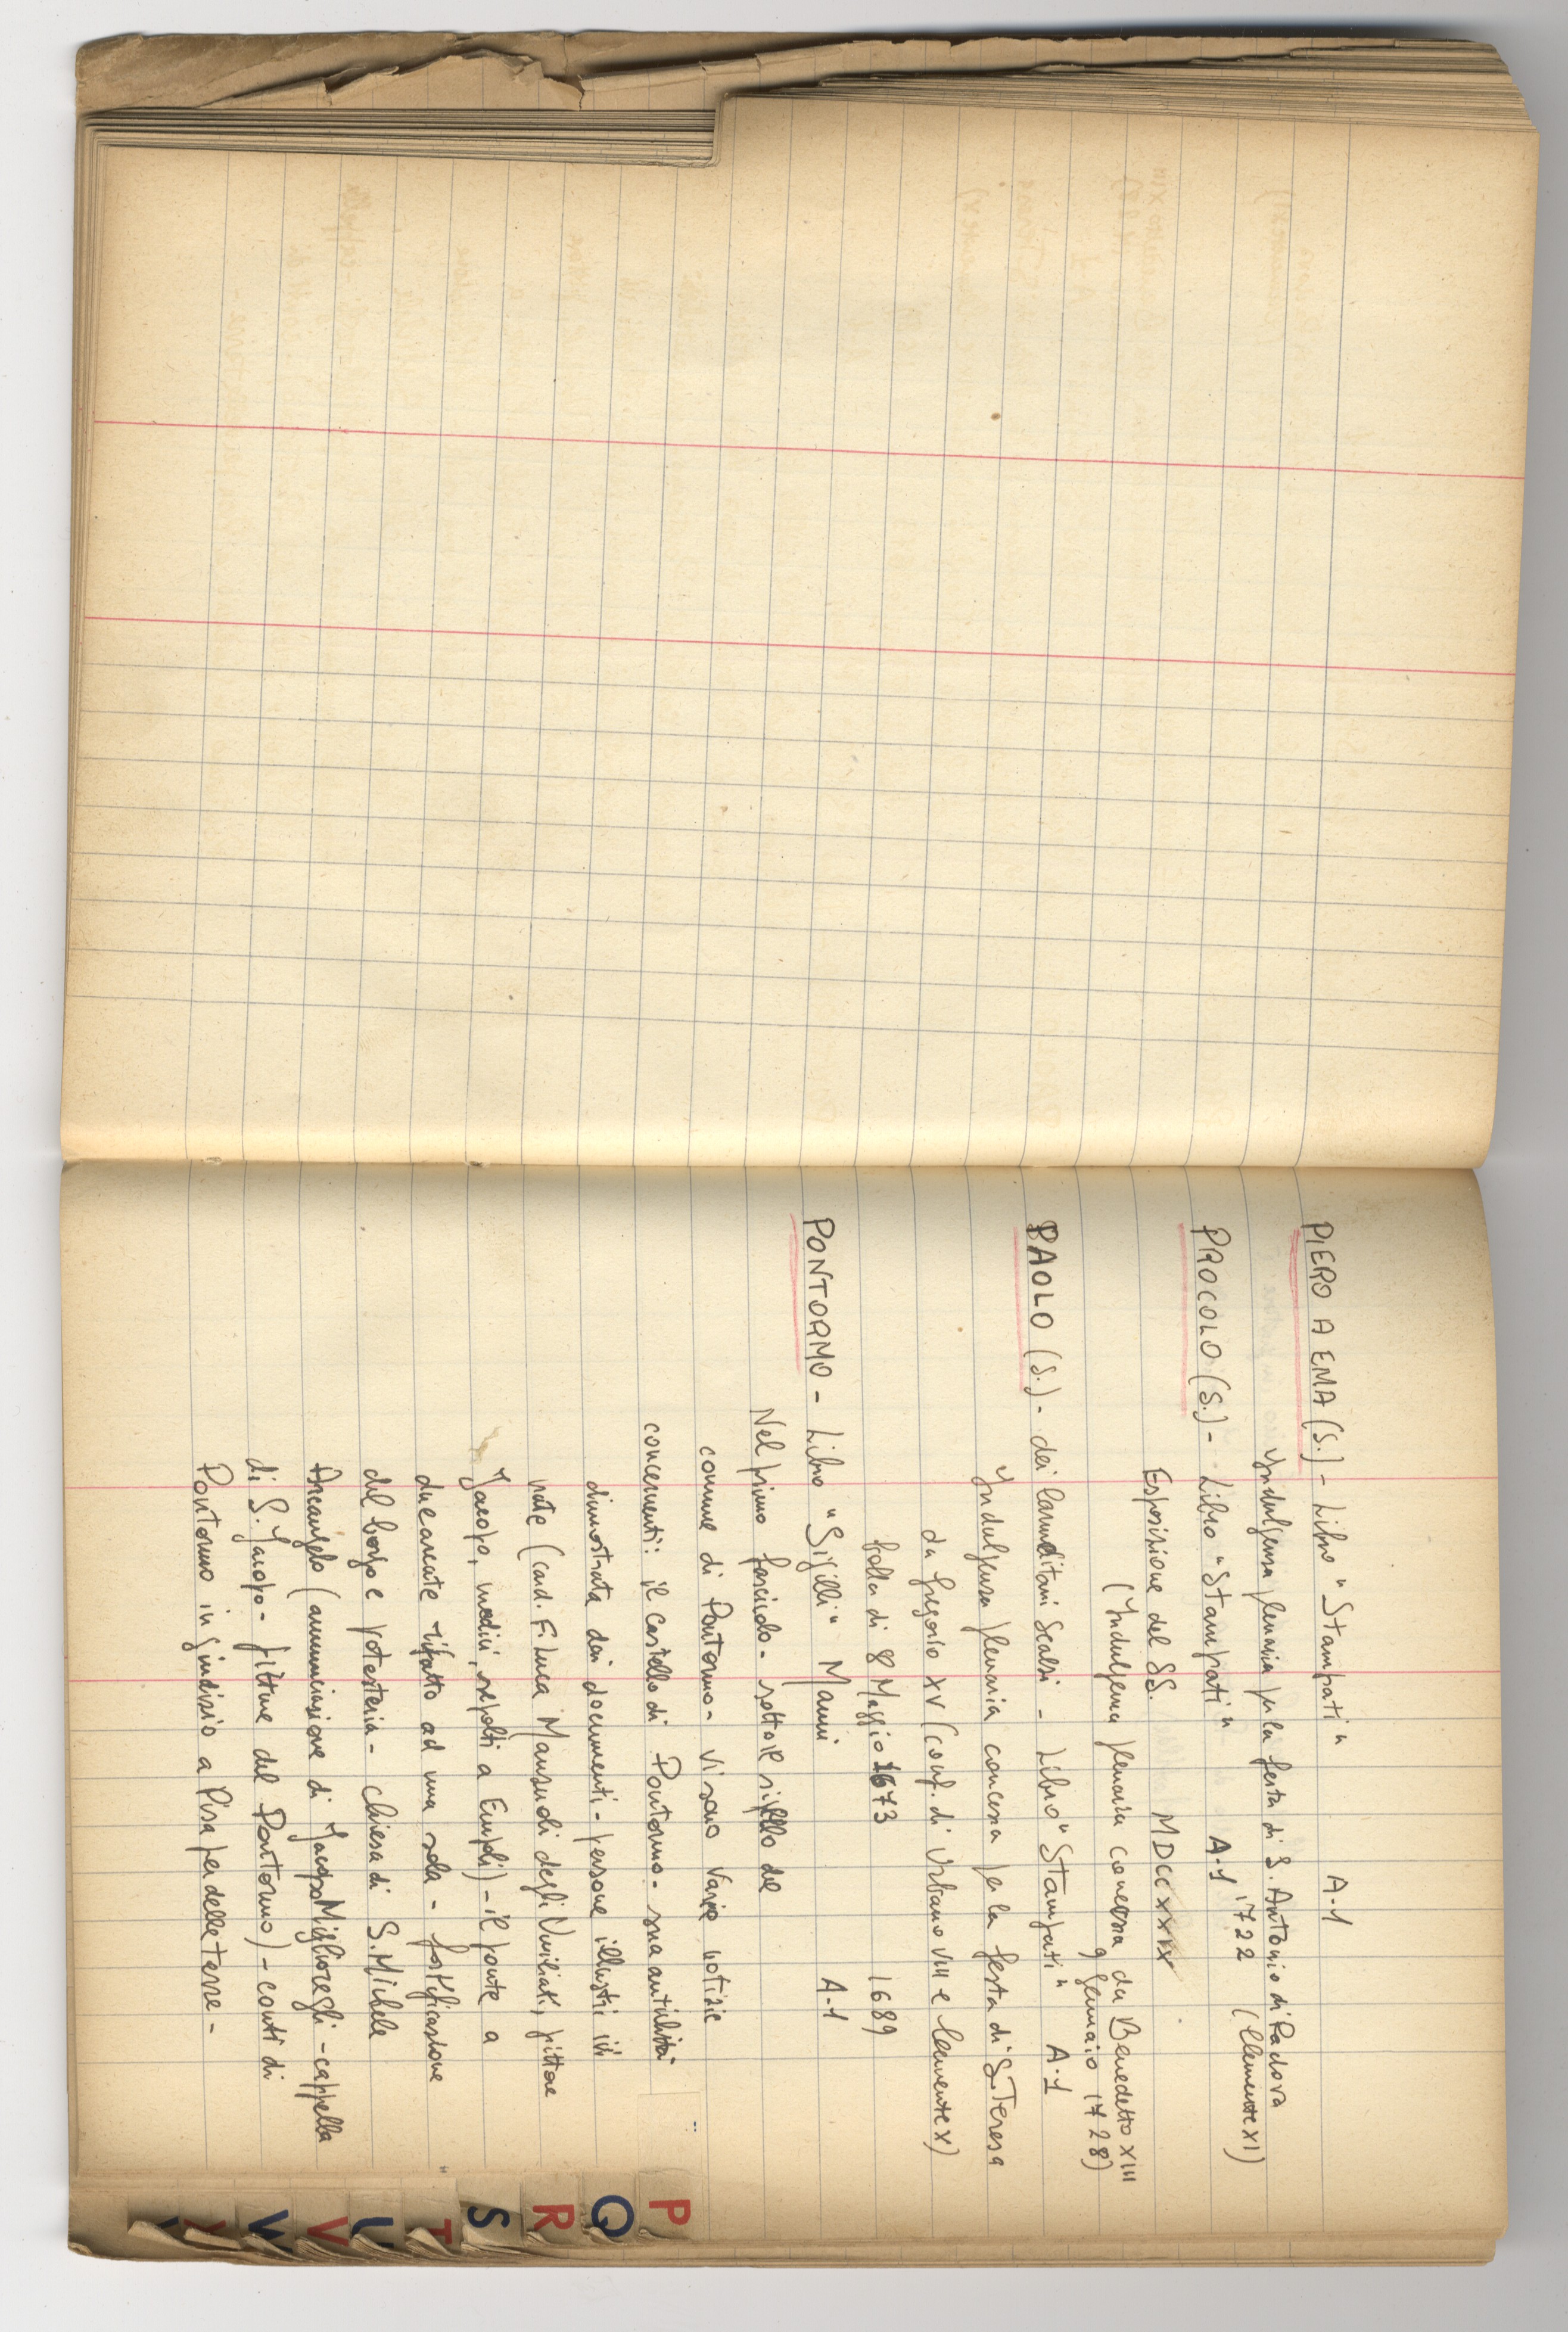 PIERO A EMA (S.) - Libro "Stampati" A.1
Indulgenza plenaria per la festa di S. Antonio di Padova
1722 (Clemente XI)
PROCOLO (S.) - Libro "Stampati" A.1
Esposizione del SS. MDCCXXIX
(Indulgenza plenaria concessa da Benedetto XIII
9 gennaio 1728)
PAOLO (S.) - dei Carmelitani Scalzi - Libro "Stampati" A.1
Indulgenza plenaria concessa per la festa di S. Teresa
da Gregorio XV (conf. di Urbano VIII e Clemente X)
bolla di 8 Maggio 1673 1689
PONTORMO - Libro "Sigilli" Manni A.1
Nel primo fascicolo - sotto il sigillo del
comune di Pontormo - vi sono varie notizie
concernenti: il castello di Pontormo - sua antichità
dimostrata dai documenti - persone illustri ivi
nate (card. F. Luca Manzuoli degli Umiliati, pittore
Jacopo, medici, sepolti a Empoli) - il ponte a
due arcate rifatto ad una sola - fortificazione
del borgo e potesteria - chiesa di S. Michele
Arcangelo (annunciazione di Jacopo Migliorelli - cappella
di S. Jacopo - pitture del Pontormo) - conti di
Pontormo in giudizio a Pisa per delle terre -
P
Q
R
S
T
U
V
W
X